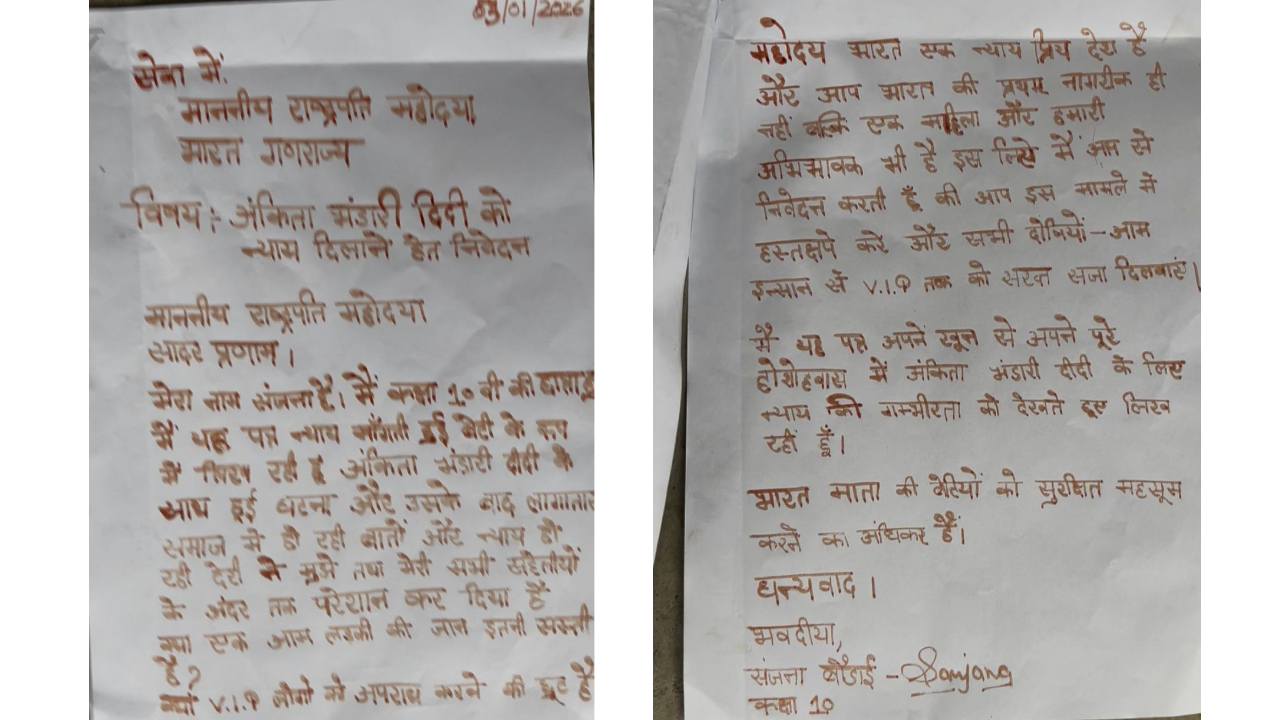 03/01/2026
सेवा में,
माननीय राष्ट्रपति महोदया,
भारत गणराज्य
विषय :- अंकिता भंडारी दिदी को
न्याय दिलाने हेत निवेदन
माननीय राष्ट्रपति महोदया
सादर प्रणाम।
मेरा नाम संजना है। मैं कक्षा 10 वी की छात्रा हूँ
मैं यह पत्र न्याय माँगती हुई बेटी के रूप
में लिख रही हूं अंकिता भंडारी दीदी के
साथ हुई घटना और उसके बाद लागातार
समाज मे हो रही बातों और न्याय हो
रही देरी ने मुझे तथा मेरी सभी सहेलीयों
के अंदर तक परेशान कर दिया है
क्या एक आम लडकी की जान इतनी सस्ती
है?
क्यों V.I.P लोगो को अपराध करने की छूट है
महोदय भारत एक न्याय प्रिय देश है
और आप भारत की प्रथम नागरीक ही
नहीं बल्कि एक महिला और हमारी
अभिभावक भी है इस लिए मैं आप से
निवेदन करती हूँ की आप इस मामले मे
हस्तक्षपे करे और सभी दोषियों - आम
इन्सान से V.I.P तक को सख्त सजा दिलवाएं।
मै यह पत्र अपने खून से अपने पूरे
होशोहवास में अंकिता भंडारी दीदी के लिए
न्याय की गम्भीरता को देखते हुए लिख
रही हूँ।
भारत माता की बेटियों को सुरक्षित महसूस
करने का अधिकर है।
धन्यवाद।
भवदीया,
संजना - Sanjana
कक्षा 10